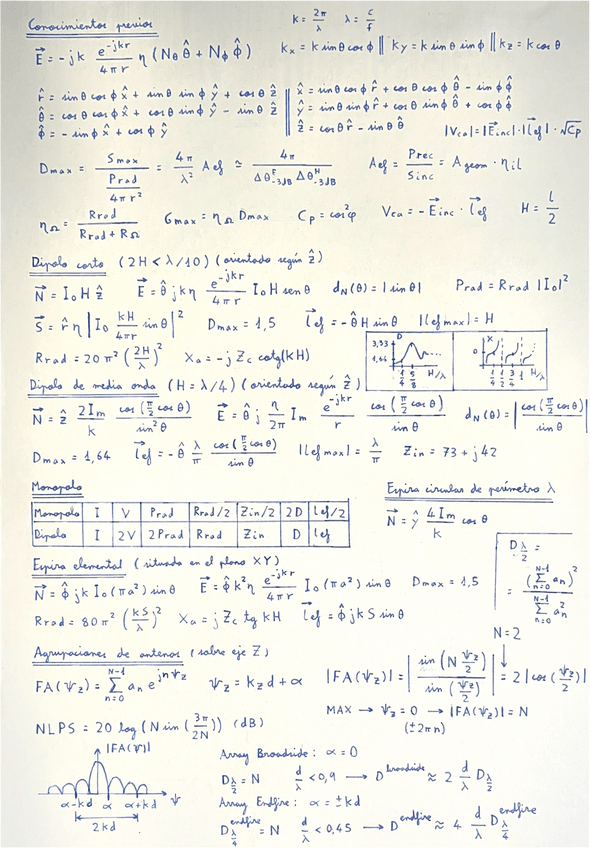 Conocimientos previos
k = 2π/λ   λ = c/f
E⃗ = -jk e^{-jkr}/(4πr) η (Nθ θ̂ + Nφ φ̂)
kx = k sinθ cosφ || ky = k sinθ sinφ || kz = k cosθ
r̂ = sinθ cosφ x̂ + sinθ sinφ ŷ + cosθ ẑ || x̂ = sinθ cosφ r̂ + cosθ cosφ θ̂ - sinφ φ̂
θ̂ = cosθ cosφ x̂ + cosθ sinφ ŷ - sinθ ẑ || ŷ = sinθ sinφ r̂ + cosθ sinφ θ̂ + cosφ φ̂
φ̂ = - sinφ x̂ + cosφ ŷ || ẑ = cosθ r̂ - sinθ θ̂
|Vca| = |E⃗inc|·|l⃗ef|·√Cp
Dmax = Smax/(Prad/(4πr²)) = 4π/λ² Aef ≃ 4π/(Δθ^E_{-3dB} Δθ^H_{-3dB})   Aef = Prec/Sinc = Ageom · ηil
ηΩ = Rrad/(Rrad + RΩ)   Gmax = ηΩ Dmax   Cp = cos²φ   Vca = - E⃗inc · l⃗ef   H = l/2
Dipolo corto (2H < λ/10) (orientado según ẑ)
N⃗ = I₀ H ẑ   E⃗ = θ̂ j k η e^{-jkr}/(4πr) I₀ H senθ   dN(θ) = |sinθ|   Prad = Rrad |I₀|²
S⃗ = r̂ η |I₀ kH/(4πr) sinθ|²   Dmax = 1,5   l⃗ef = -θ̂ H sinθ   |lefmax| = H
Rrad = 20π² (2H/λ)²   Xa = -j Zc cotg(kH)
D   3,33   1,64   1/4   5/8   H/λ
X   0   1/4   1/2   3/4   1   H/λ
Dipolo de media onda (H = λ/4) (orientado según ẑ)
N⃗ = ẑ 2Im/k cos(π/2 cosθ)/sin²θ   E⃗ = θ̂ j η/2π Im e^{-jkr}/r cos(π/2 cosθ)/sinθ   dN(θ) = |cos(π/2 cosθ)/sinθ|
Dmax = 1,64   l⃗ef = -θ̂ λ/π cos(π/2 cosθ)/sinθ   |lefmax| = λ/π   Zin = 73 + j42
Monopolo
Monopolo | I | V | Prad | Rrad/2 | Zin/2 | 2D | lef/2
Dipolo | I | 2V | 2Prad | Rrad | Zin | D | lef
Espira circular de perímetro λ
N⃗ = ŷ 4Im/k cosθ
Espira elemental (situada en el plano XY)
N⃗ = φ̂ jk I₀ (πa²) sinθ   E⃗ = φ̂ k² η e^{-jkr}/(4πr) I₀ (πa²) sinθ   Dmax = 1,5
Rrad = 80π² (kS/λ)²   Xa = j Zc tg kH   l⃗ef = φ̂ j k S sinθ
D_{λ/2} = (∑_{n=0}^{N-1} an)² / ∑_{n=0}^{N-1} an²
Agrupaciones de antenas (sobre eje Z)
FA(ψz) = ∑_{n=0}^{N-1} an e^{jnψz}   ψz = kz d + α   |FA(ψz)| = |sin(N ψz/2)/sin(ψz/2)| = 2|cos(ψz/2)|
N=2
↓
MAX → ψz = 0 → |FA(ψz)| = N
(±2πn)
NLPS = 20 log (N sin(3π/2N)) (dB)
|FA(ψ)|
α-kd   α   α+kd   ψ
2kd
Array Broadside: α = 0
D_{λ/2} = N   d/λ < 0,9 → D^{broadside} ≈ 2 d/λ D_{λ/2}
Array Endfire: α = ±kd
D^{endfire}_{λ/4} = N   d/λ < 0,45 → D^{endfire} ≈ 4 d/λ D^{endfire}_{λ/4}